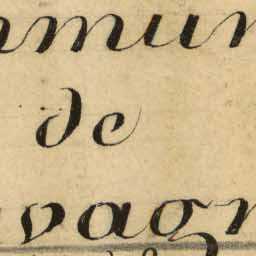 mmun
de
avagn